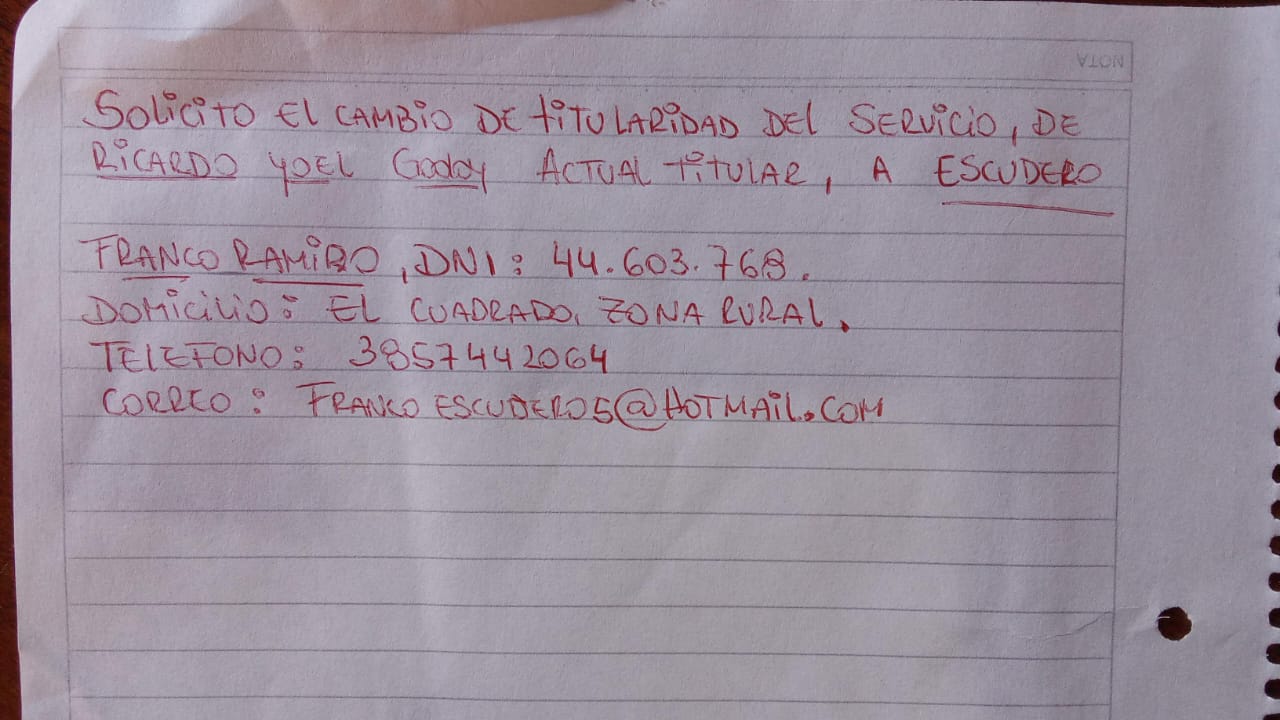 NOTA
Solicito El CAMBiO DE titULARiDAD DEl SERViCiO, DE
RiCARDO yOEl Godoy ACTUAl titULAR, A ESCUDERO
FRANCO RAMiRO, DNI: 44.603.768.
DOMiCiliO: El CUADRADO, ZONA RURAl.
TELEFONO: 3857442064
CORREO: FRANCOESCUDERO5@HOTMAil.COM